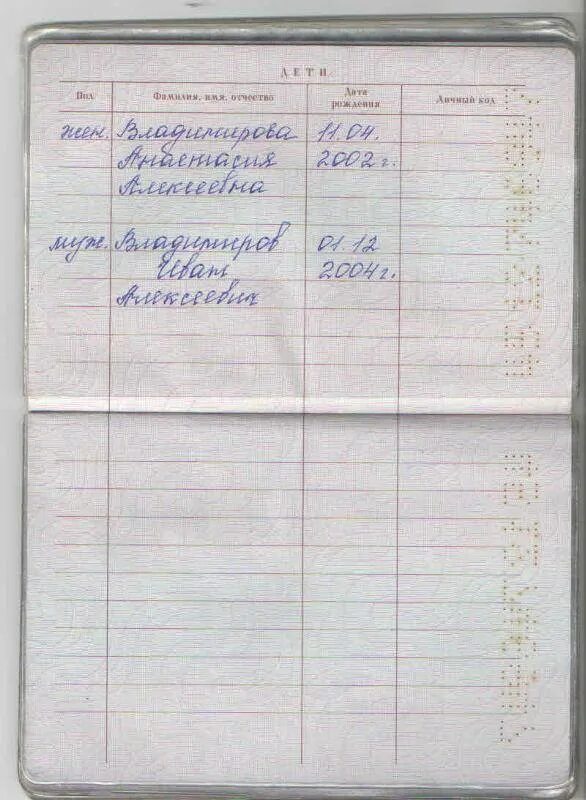 ДЕТИ
Пол Фамилия, имя, отчество Дата рождения Личный код
жен. Владимирова 11.04.
Анастасия 2002 г.
Алексеевна
муж. Владимиров 01.12
Иван 2004 г.
Алексеевич